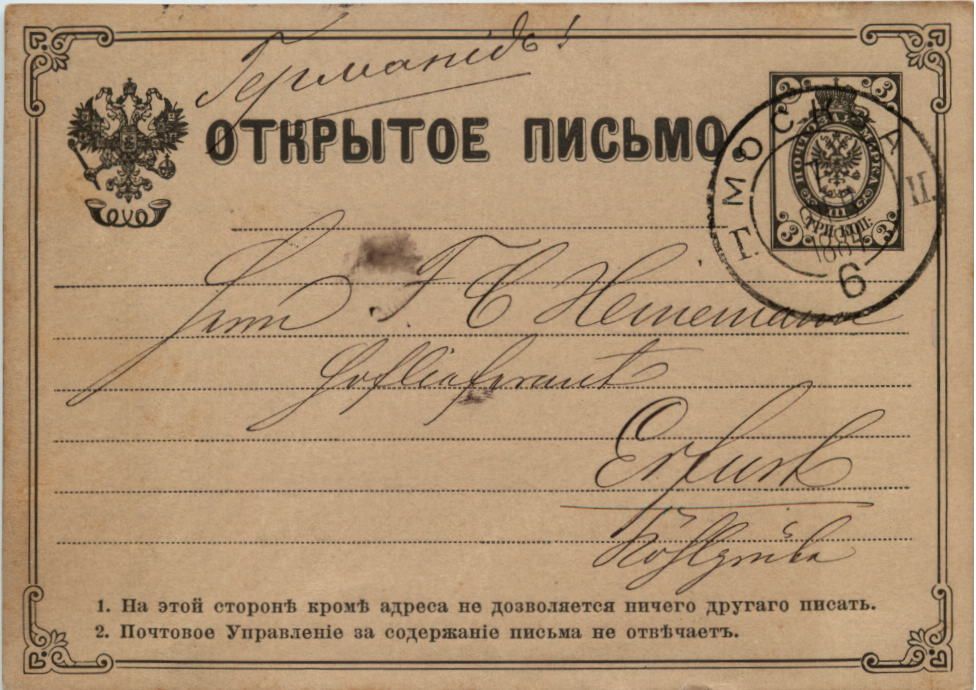 Германія!
ОТКРЫТОЕ ПИСЬМО
3 3
ПОЧТОВ. МАРКА
III
ТРИ КОП:
3 3
Г. МОСКВА II.
6
Herrn F C Heinemann
Hoflieferant
Erfurt
1. На этой сторонѣ кромѣ адреса не дозволяется ничего другаго писать.
2. Почтовое Управленіе за содержаніе письма не отвѣчаетъ.